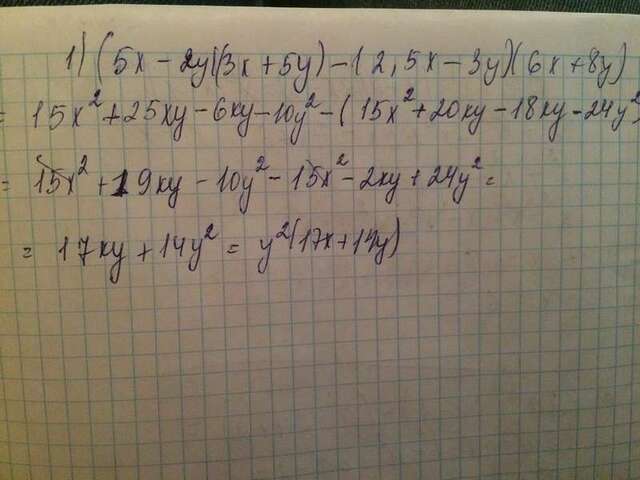 1) (5x - 2y)(3x + 5y) - (2,5x - 3y)(6x + 8y)
= 15x² + 25xy - 6xy - 10y² - (15x² + 20xy - 18xy - 24y²)
= 15x² + 19xy - 10y² - 15x² - 2xy + 24y² =
= 17xy + 14y² = y²(17x + 14y)